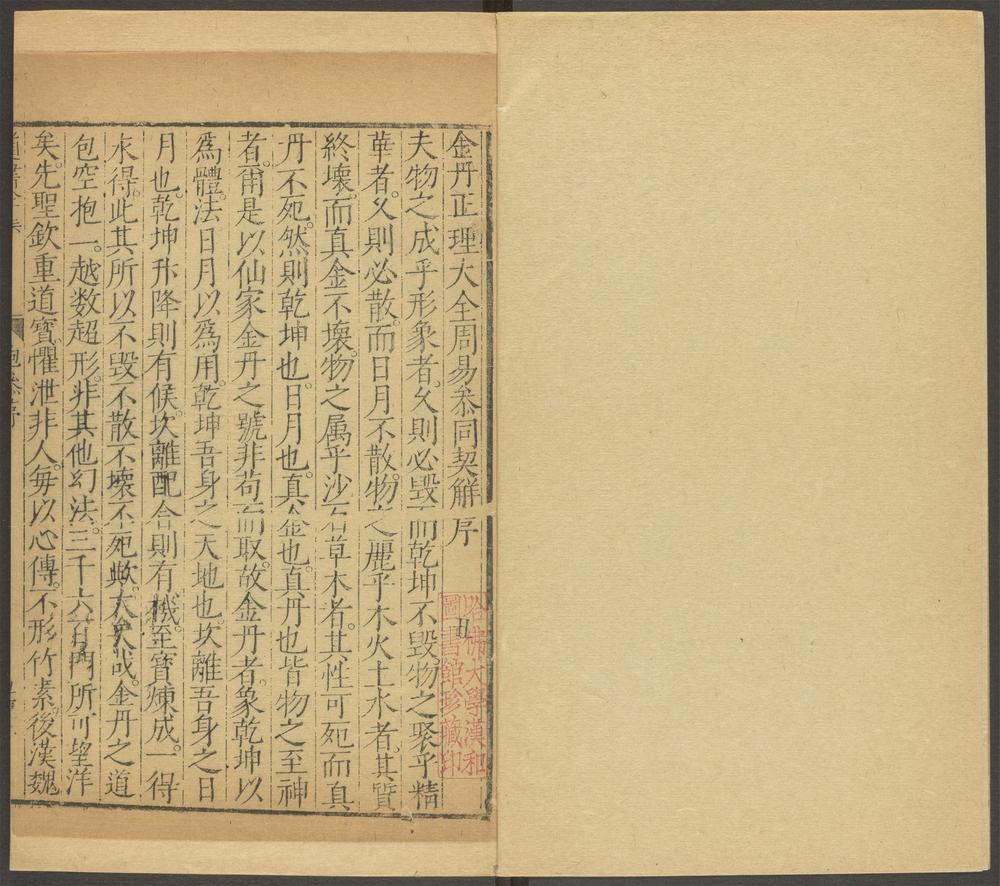 金丹正理大全周易叅同契解序
夫物之成乎形象者。久則必毀。而乾坤不毀。物之聚乎精
華者。久則必散。而日月不散。物之麗乎木火土水者。其質
終壞。而真金不壞。物之属乎沙石草木者。其性可死而真
丹不死。然則乾坤也。日月也。真金也。真丹也皆物之至神
者。爾是以仙家金丹之號非苟而取。故金丹者。象乾坤以
爲體。法日月以爲用。乾坤吾身之天地也。坎離吾身之日
月也。乾坤升降則有候。坎離配合則有機。至寳煉成。一得
永得。此其所以不毀不散不壞不死歟。大矣哉。金丹之道
包空抱一。越数超形。非其他幻法。三千六百門所可望洋
矣。先聖欽重道寳。懼泄非人。每以心傳。不形竹素。後漢魏
哈佛大學漢和
圖書館珍藏印